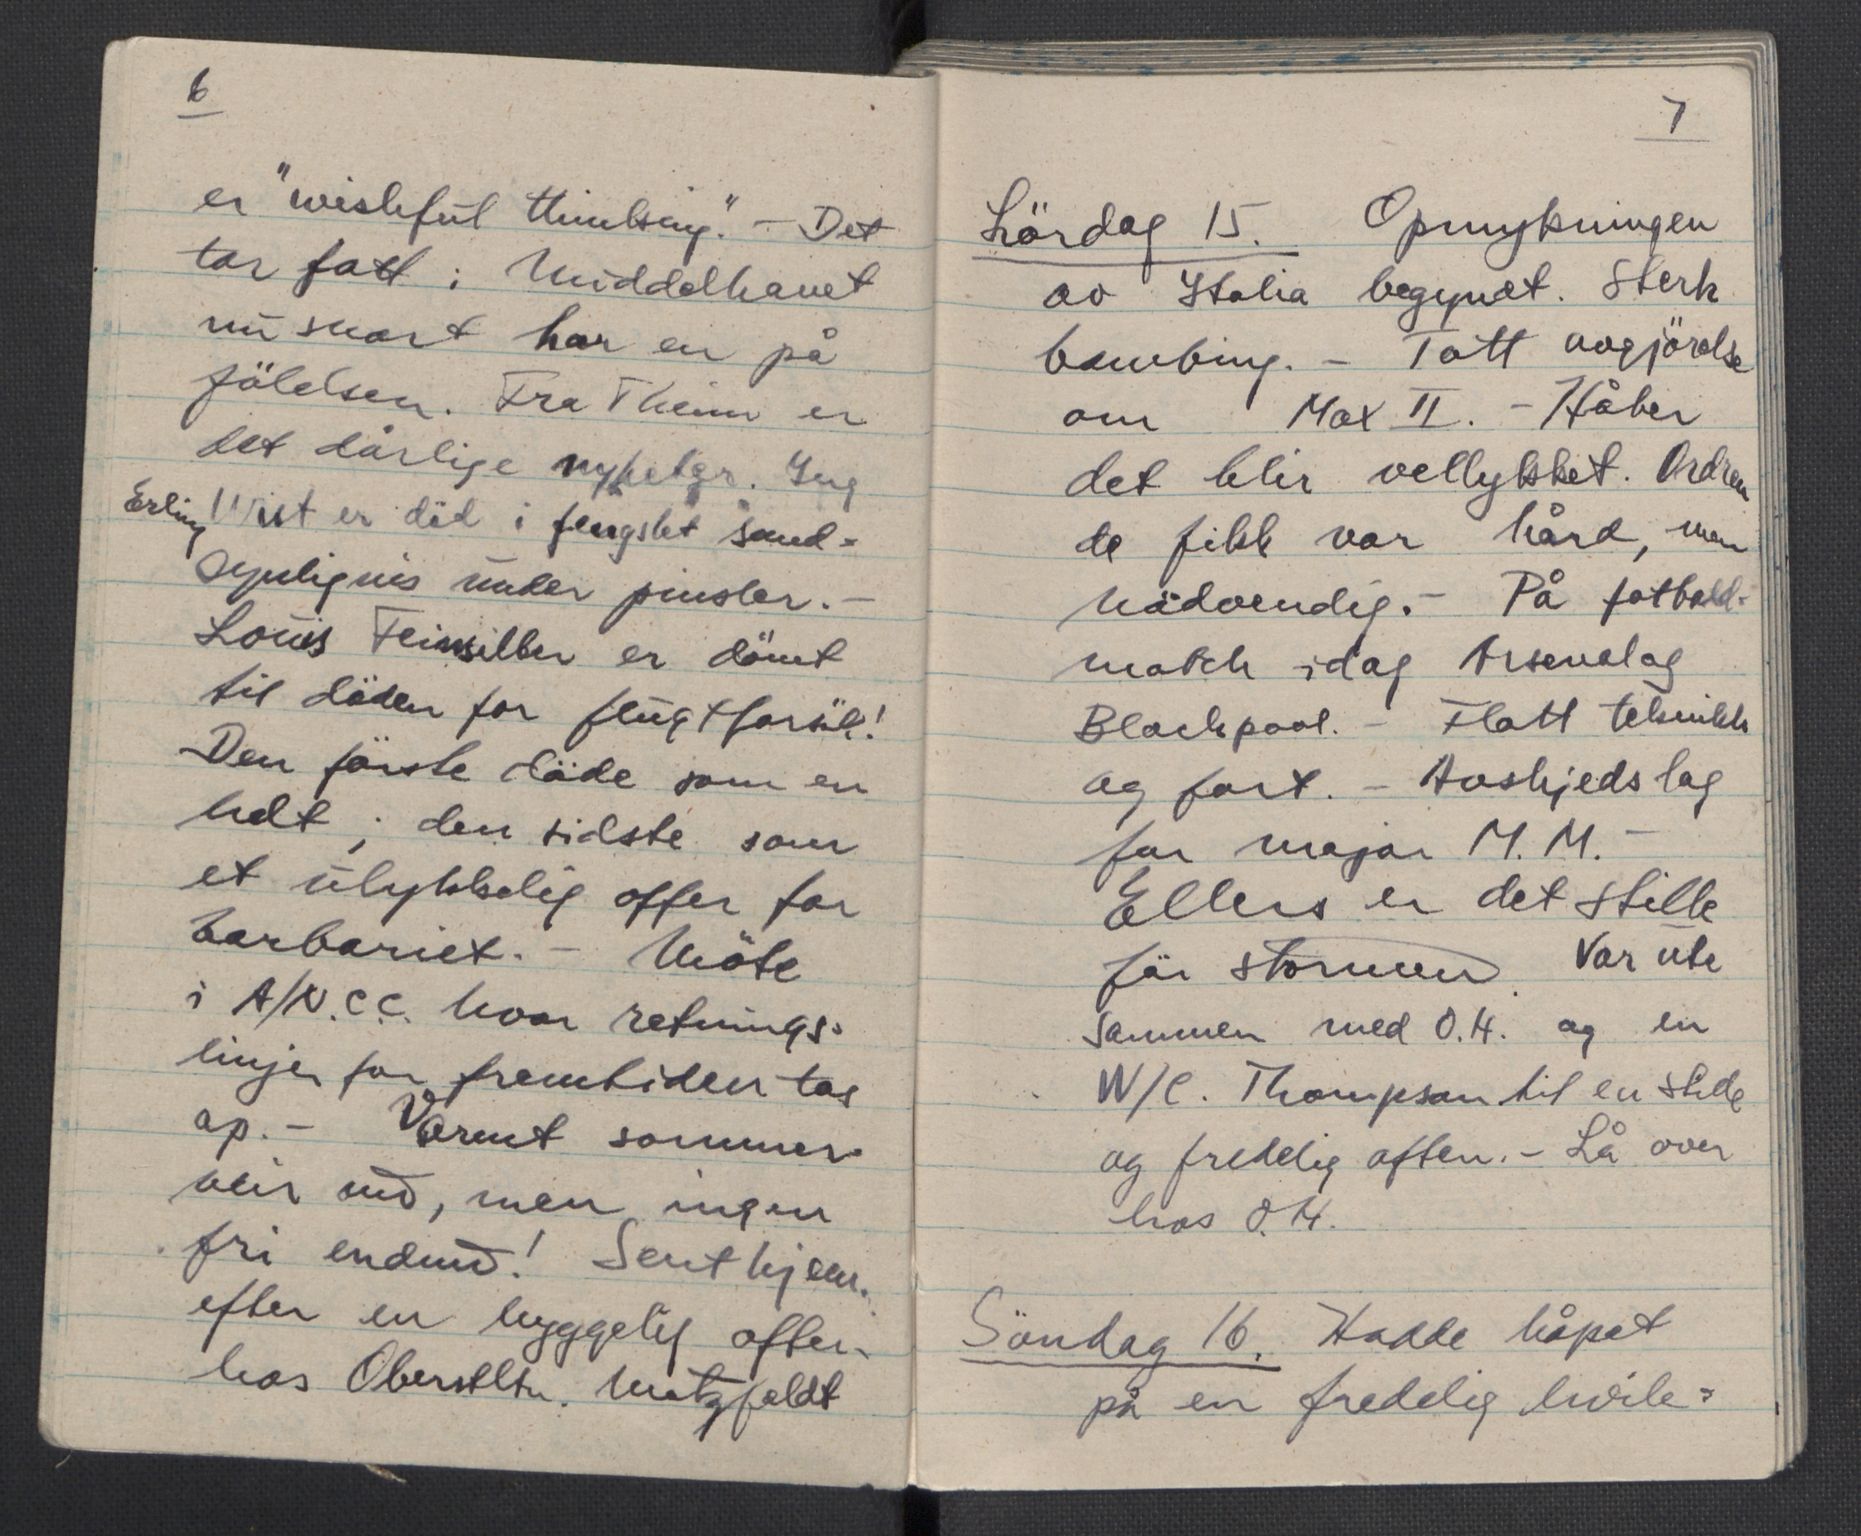 6
er "wishful thinking". - Det
tar fatt i Middelhavet
nu snart har en på
fölelsen. Fra Theim er
det dårlige nyheter. Ing
Erling Wist er död i fengslet sand-
synligvis under pinsler. -
Louis Feinsilber er dömt
til döden for flugtforsök!
Den förste döde som en
helt; den sidste som
et ulykkelig offer for
barbariet. - Möte
i A/N.C.C. hvor retnings-
linjer for fremtiden tas
op. - Varmt sommer-
veir nu, men ingen
fri endnu! Sent hjem.
efter en hyggelig aften
hos Oberstltn. Motzfeldt
7
Lördag 15. Opmykningen
av Italia begyndt. Sterk
bombing. - Tatt avgjörelse
om Max II. - Håber
det blir vellykket. Ordren
de fikk var hård, men
nödvendig. - På fotbold-
match idag Arsenal og
Blackpool. - Flott teknikk
og fart. - Avskjedslag
for major M. M. -
Ellers er det stille
för stormen. Var ute
sammen med O.H. og en
W/C. Thompson til en stille
og fredelig aften. - Lå over
hos O.H.
Söndag 16. Hadde håpet
på en fredelig hvile-